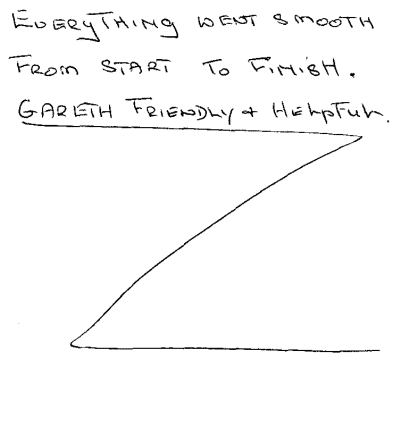 EVERYTHING WENT SMOOTH
FROM START TO FINISH.
GARETH FRIENDLY + HELPFUL.